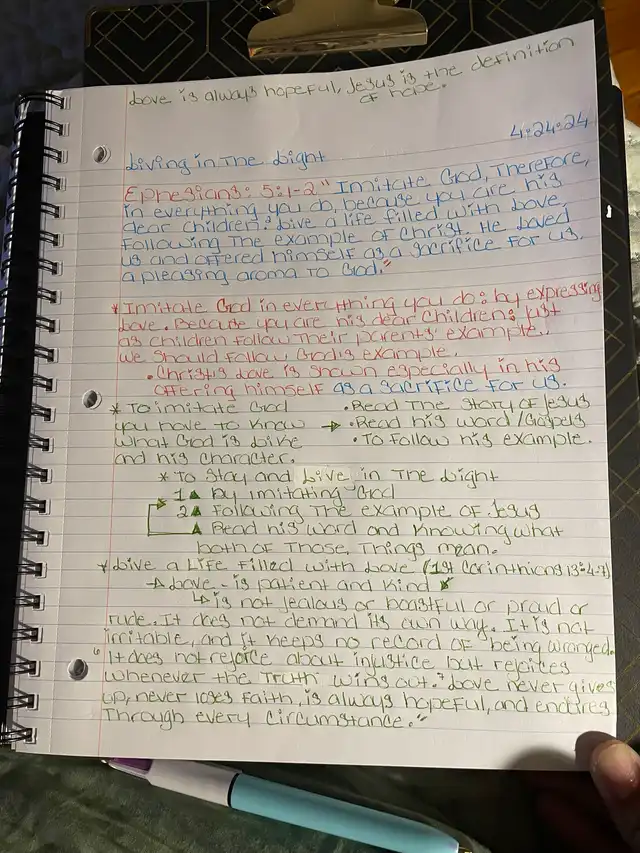 Love is always hopeful, Jesus is the definition
of hope.
4-24-24
Living in The Light
Ephesians: 5:1-2 " Imitate God, Therefore,
in everything you do, because you are his
dear children. ² Live a life filled with Love,
following The example of Christ. He Loved
us and offered himself as a sacrifice for us.
a pleasing aroma to God."
* Imitate God in everything you do: by expressing
Love. Because you are his dear children; just
as children follow Their parents' example.
we should follow God's example.
• Christ's Love is shown especially in his
offering himself as a sacrifice for us.
* To imitate God
you have to know →
what God is Like
and his character.
• Read The Story of Jesus
• Read his word/Gospels
• To follow his example.
* To Stay and Live in The Light
1▲ by imitating God
2▲ Following The example of Jesus
▲ Read his word and Knowing what
both of Those, Things mean.
* Live a Life Filled with Love (1st Corinthians 13:4-7)
→ Love - is patient and Kind
↳ is not jealous or boastful or proud or
rude. It does not demand its own way. It is not
irritable, and it keeps no record of being wronged.
⁶ It does not rejoice about injustice but rejoices
whenever the Truth wins out. ⁷ Love never gives
up, never loses faith, is always hopeful, and endures
Through every circumstance."